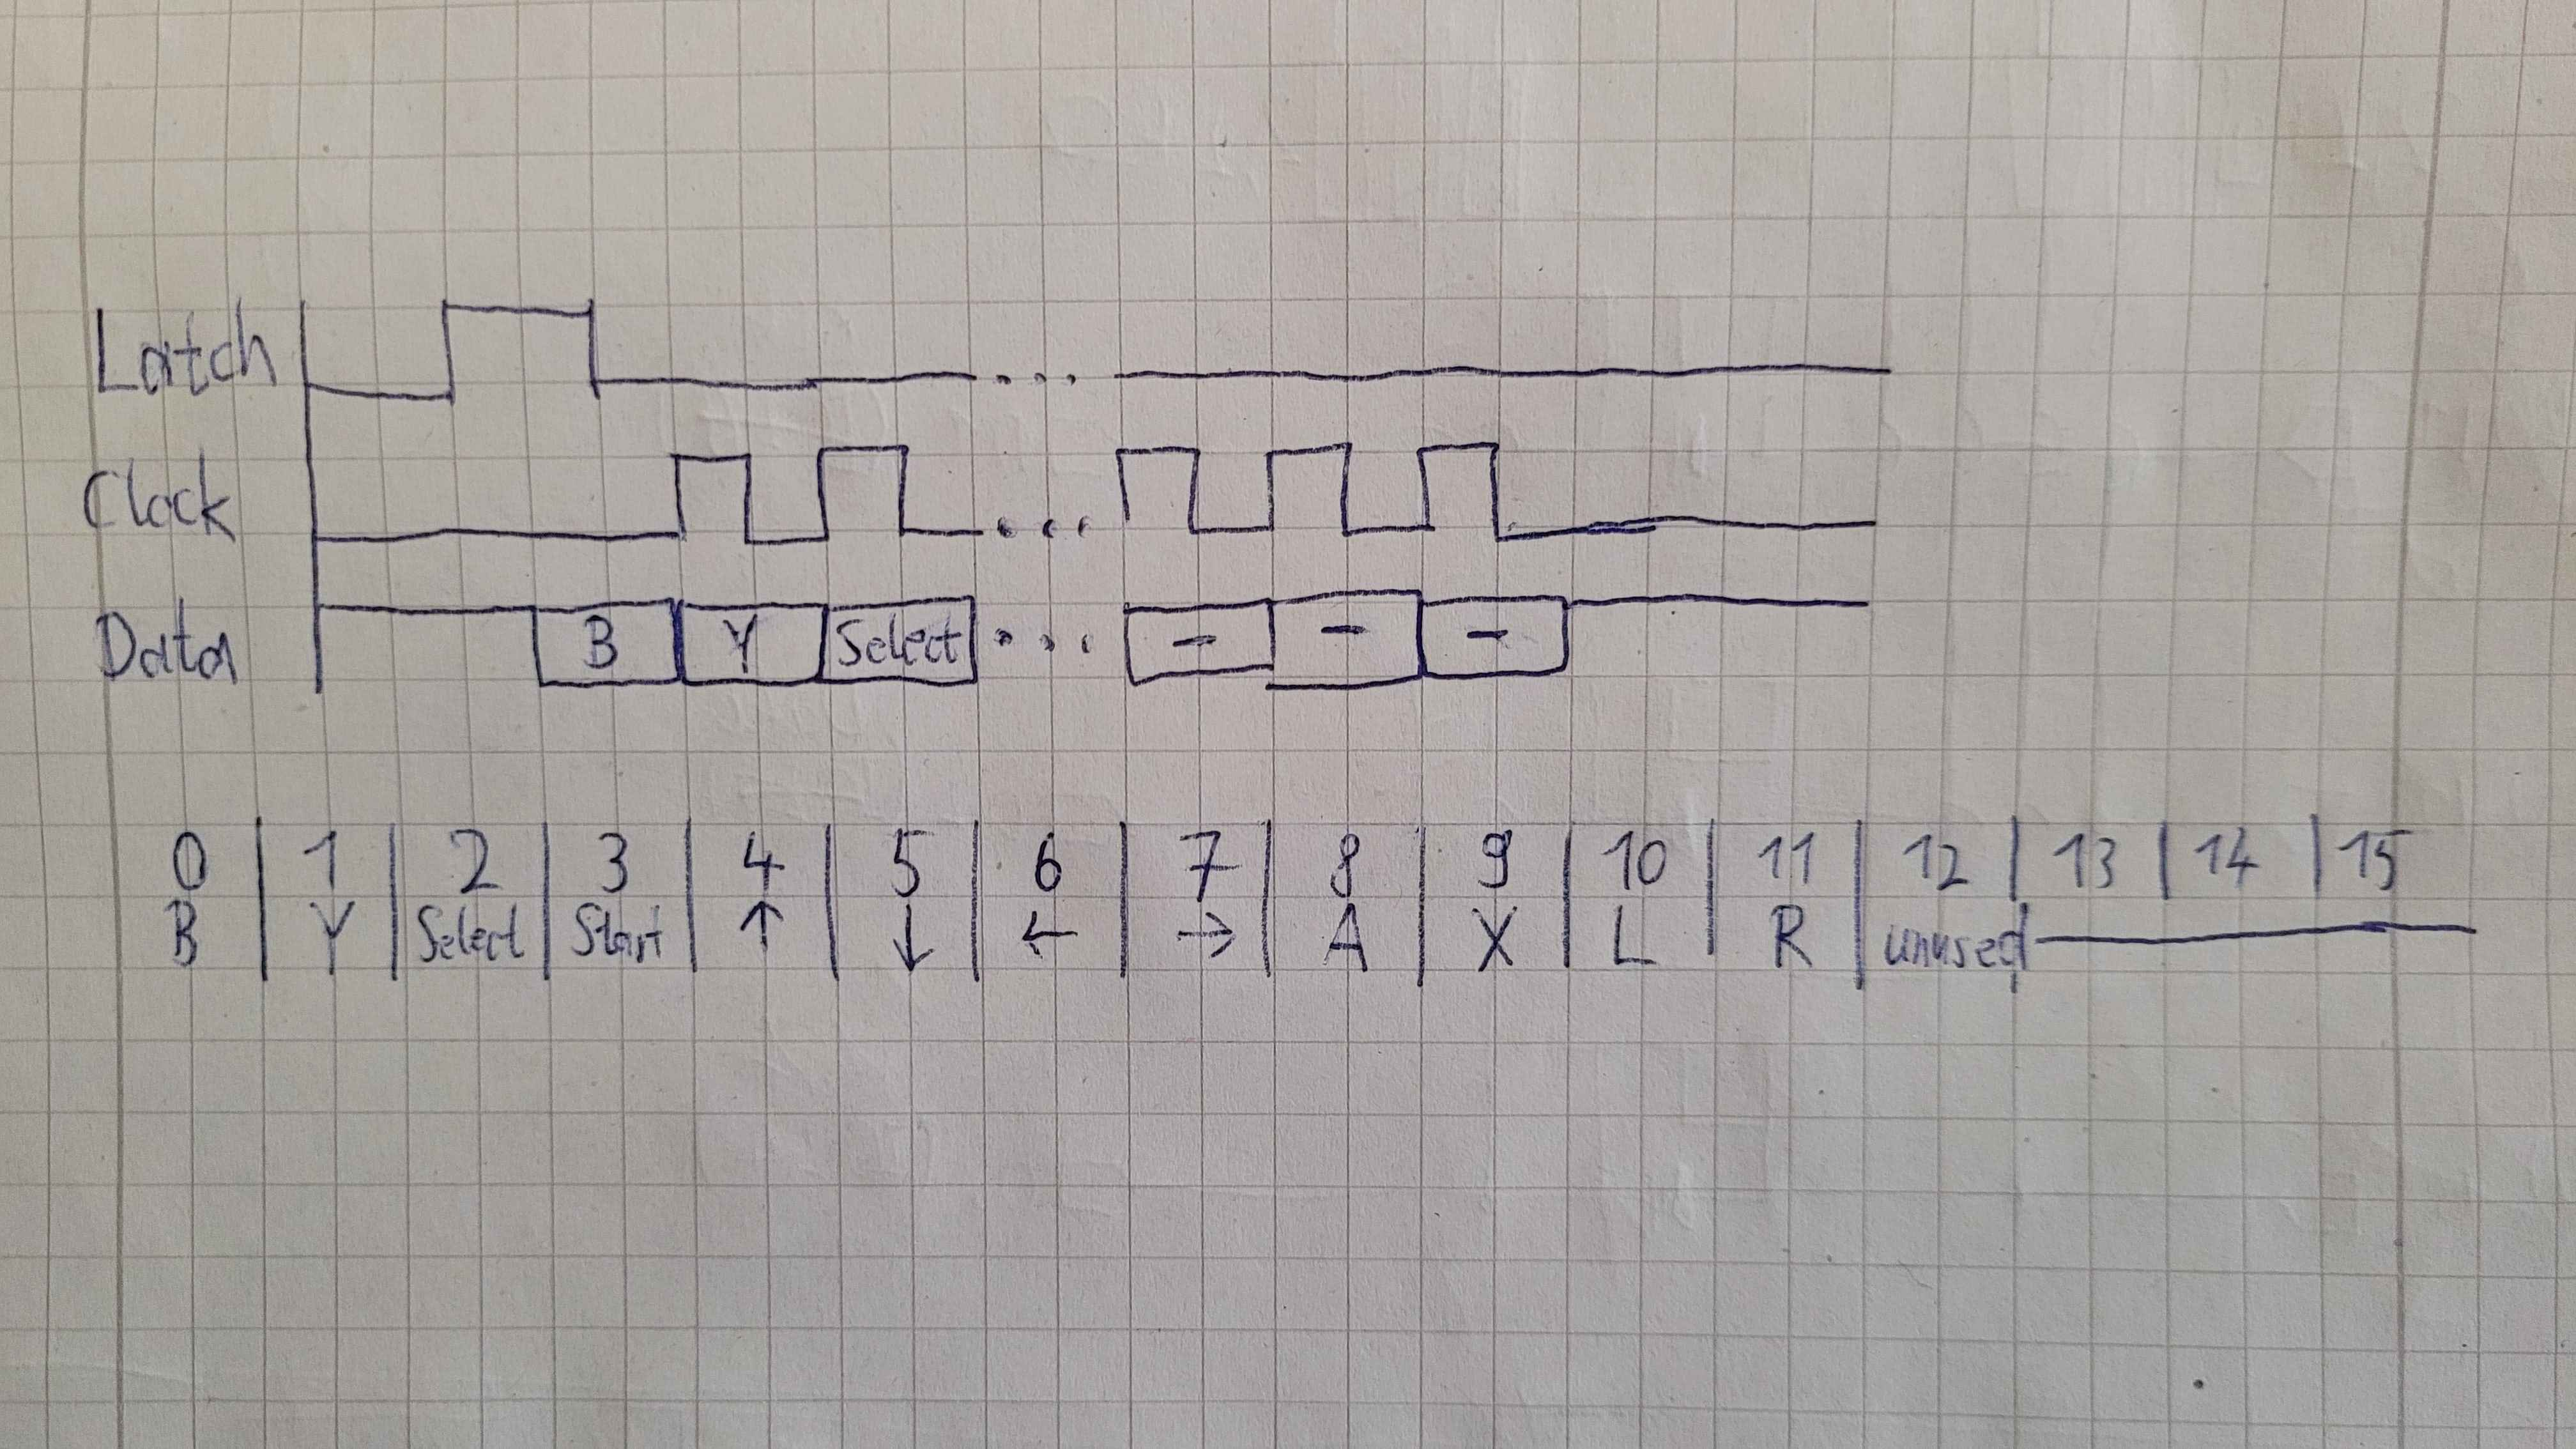 Latch ...
Clock ...
Data B Y Select ... - - -
0 | 1 | 2 | 3 | 4 | 5 | 6 | 7 | 8 | 9 | 10 | 11 | 12 | 13 | 14 | 15
B | Y | Select | Start | ↑ | ↓ | ← | → | A | X | L | R | unused